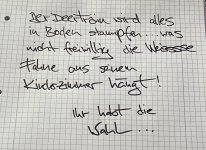 Der Deeitram wird alles
in Boden stampfen...was
nicht freiwillig die
Fahne aus seinem
Kinderzimmer hängt!
Ihr habt die
Wahl...